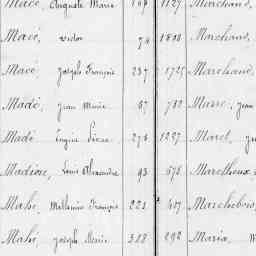 Macé, Auguste Marie 164 1127 Marchand,
Macé, Victor 74 1808 Marchand,
Macé Joseph François 237 1725 Marchand,
Madé, Jean Marie 67 782 Marie, Jean
Madé Eugène Pierre 274 1227 Maret,
Madiou, Louis Alexandre 93 675 Maretheux,
Mahé, Mathurin François 221 417 Marchebois,
Mahé, Joseph Marie 318 292 Maria,